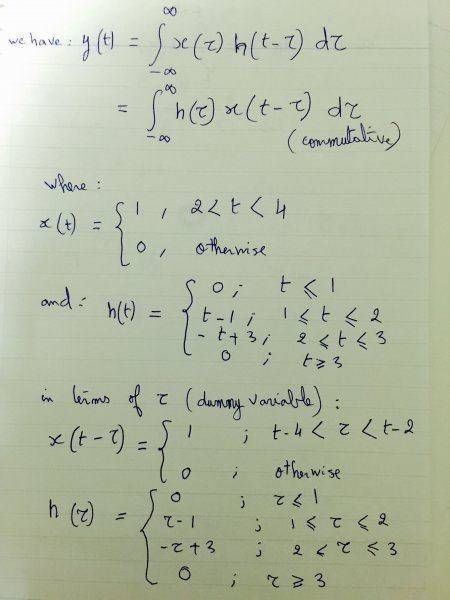 we have: y(t) = ∫_{-∞}^{∞} x(τ) h(t-τ) dτ
= ∫_{-∞}^{∞} h(τ) x(t-τ) dτ
(commutative)
where:
x(t) = { 1 , 2 < t < 4
0 , otherwise
and: h(t) = { 0 ; t ⩽ 1
t-1 ; 1 ⩽ t ⩽ 2
-t+3 ; 2 ⩽ t ⩽ 3
0 ; t ⩾ 3
in terms of τ (dummy variable):
x(t-τ) = { 1 ; t-4 < τ < t-2
0 ; otherwise
h(τ) = { 0 ; τ ⩽ 1
τ-1 ; 1 ⩽ τ ⩽ 2
-τ+3 ; 2 ⩽ τ ⩽ 3
0 ; τ ⩾ 3